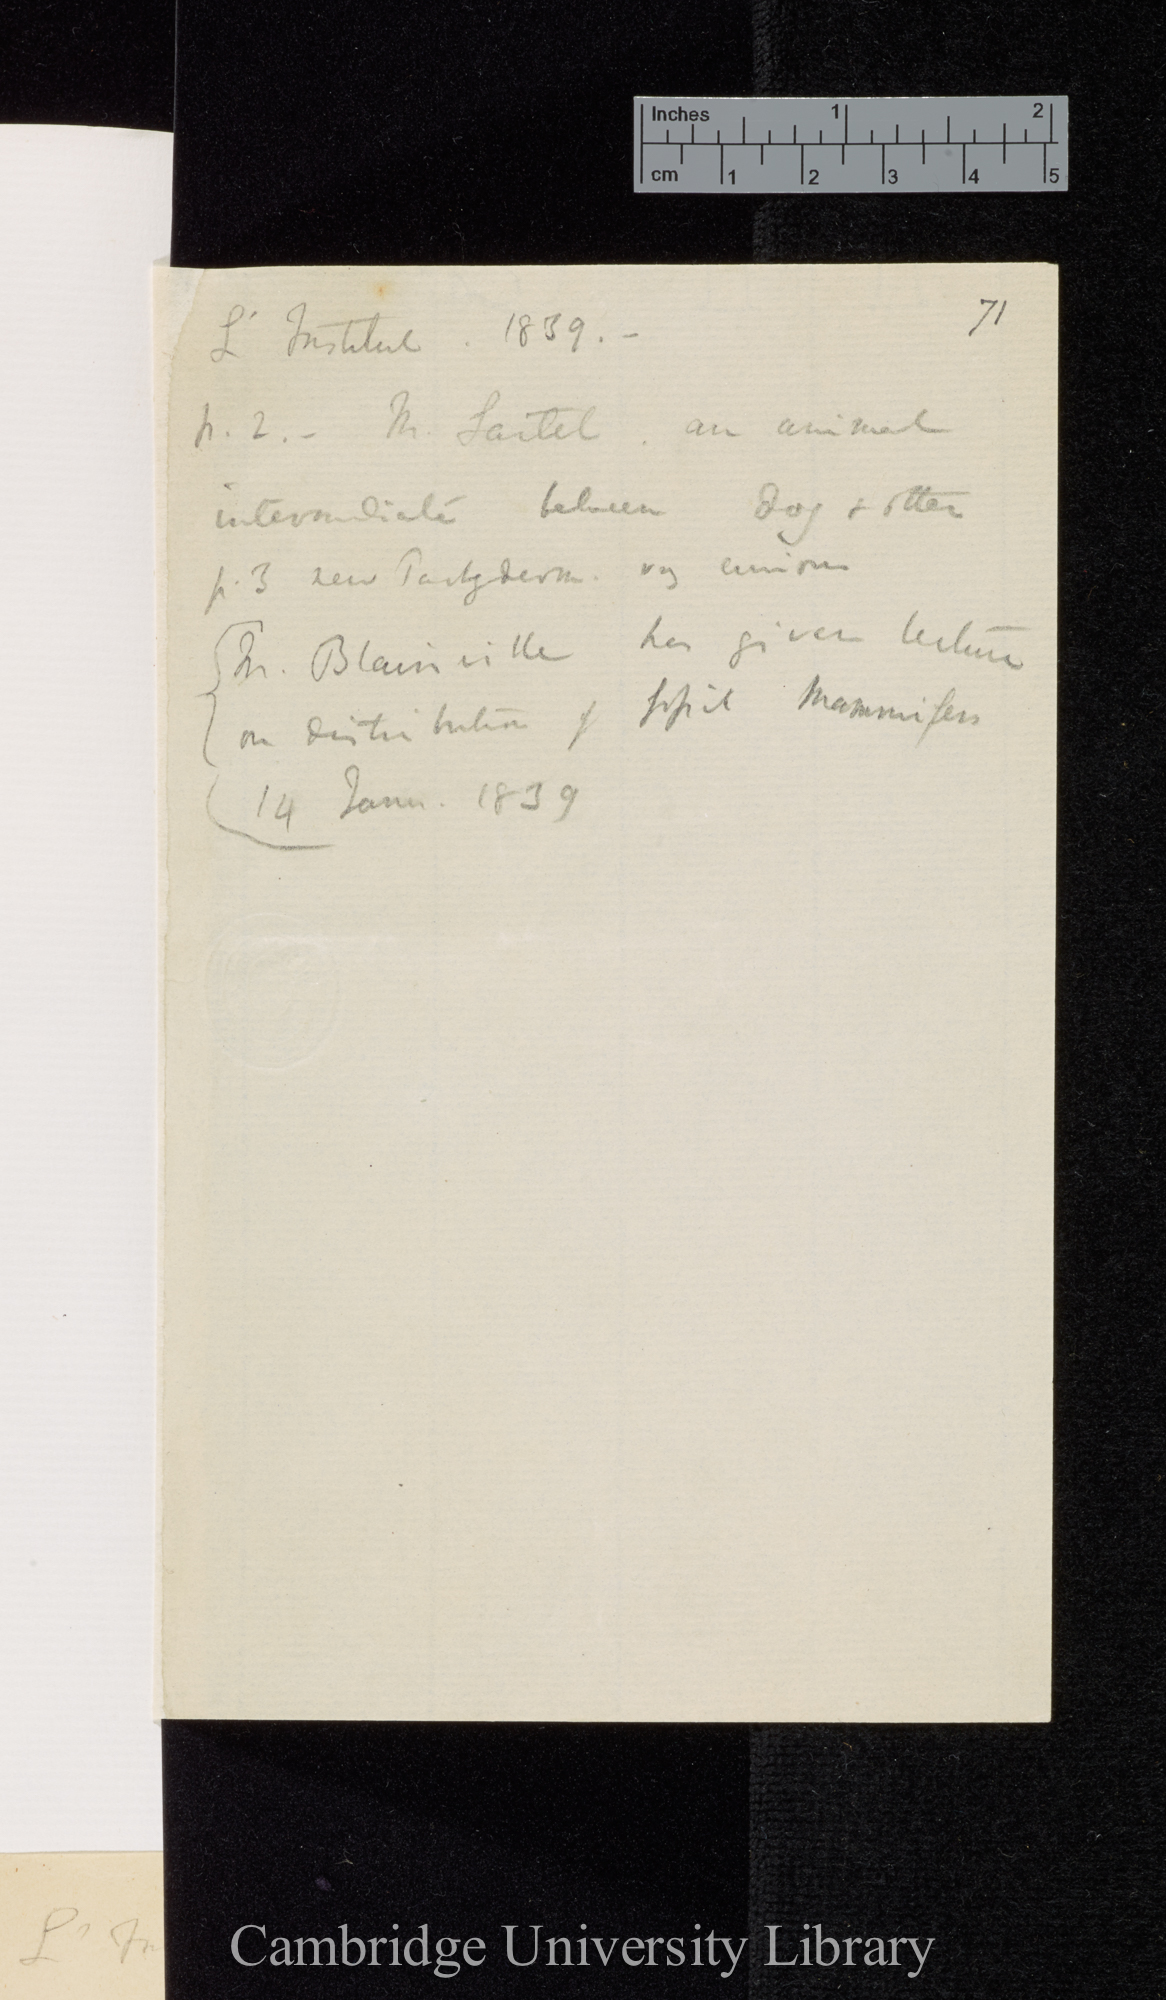 Inches 1 2
cm 1 2 3 4 5
71
L' Institut . 1839. –
p. 2. – M. Lartet . an animal
intermediate between Dog & otter
p. 3 new Pachyderm. very curious
M. Blainville has given lecture
on distribution of fossil Mammifers
14 Janu. 1839
L' In
Cambridge University Library